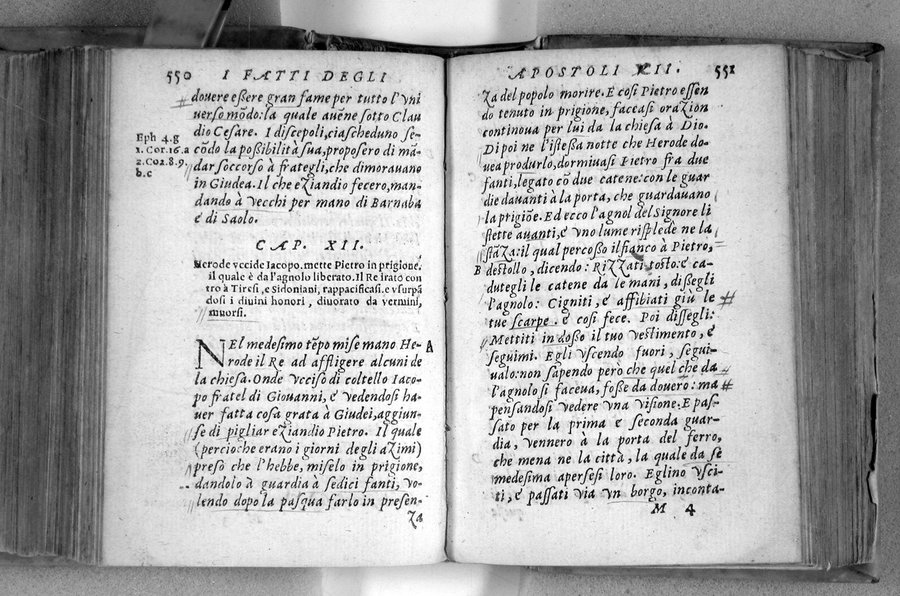 550 I FATTI DEGLI
douere eßere gran fame per tutto l'vni
uerso mōdo: la quale auēne sotto Clau
dio Cesare. I discepoli, ciascheduno se-
cōdo la poßibilità sua, proposero di mā-
dar soccorso à frategli, che dimorauano
in Giudea. Il che eziandio fecero, man-
dando à vecchi per mano di Barnaba
e di Saolo.
Eph 4.g
1. Cor. 16.a
2. Co2. 8.9.
b.c
CAP. XII.
Herode vccide Iacopo. mette Pietro in prigione.
il quale è da l'agnolo liberato. Il Re irato con
tro à Tiresi, e Sidoniani, rappacificasi. e vsurpā
dosi i diuini honori, diuorato da vermini,
muorsi.
NEl medesimo tēpo mise mano He- A
rode il Re ad affligere alcuni de
la chiesa. Onde vccise di coltello Iaco-
po fratel di Giouanni, e vedendosi ha-
uer fatta cosa grata à Giudei, aggiun-
se di pigliar eziandio Pietro. Il quale
(percioche erano i giorni degli azimi)
preso che l'hebbe, miselo in prigione,
dandolo à guardia à sedici fanti, vo-
lendo dopo la pasqua farlo in presen-
za
APOSTOLI XII. 551
za del popolo morire. E cosi Pietro essen
do tenuto in prigione, faceasi orazion
continoua per lui da la chiesa à Dio.
Di poi ne l'istessa notte che Herode do-
uea produrlo, dormiuasi Pietro fra due
fanti, legato cō due catene: con le guar
die dauanti à la porta, che guardauano
la prigiōe. Ed ecco l'agnol del Signore li
stette auanti, e vno lume risplēde ne la
stāza: il qual percosso il fianco à Pietro,
B destollo, dicendo: Rizzati tosto: e ca-
dutegli le catene da le mani, dissegli
l'agnolo: Cigniti, e affibiati giù le
tue scarpe. e cosi fece. Poi dissegli:
Mettiti in dosso il tuo vestimento, e
seguimi. Egli vscendo fuori, segui-
ualo: non sapendo però che quel che da
l'agnolo si faceua, fosse da douero: ma
pensandosi vedere vna visione. E pas-
sato per la prima e seconda guar-
dia, vennero à la porta del ferro,
che mena ne la città, la quale da sè
medesima apersesi loro. Eglino vsci-
ti, e passati via vn borgo, inconta-
M 4